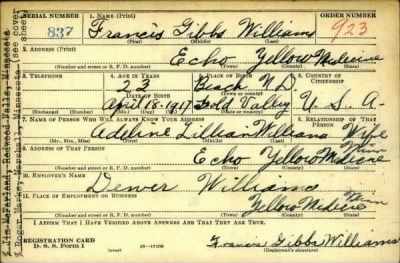 SERIAL NUMBER 1. NAME (Print) ORDER NUMBER
837 Francis Gibbs Williams 923
(First) (Middle) (Last)
2. ADDRESS (Print)
Echo Yellow Medicine
(Number and street or R. F. D. number) (Town) (County) (State)
3. TELEPHONE 4. AGE IN YEARS 5. PLACE OF BIRTH 6. COUNTRY OF CITIZENSHIP
23 Beach N.D.
DATE OF BIRTH
April 18-1917 Gold Valley U. S. A-
(Exchange) (Number) (Mo.) (Day) (Yr.) (Town or county) (State or country)
7. NAME OF PERSON WHO WILL ALWAYS KNOW YOUR ADDRESS 8. RELATIONSHIP OF THAT PERSON
Adeline Lillian Williams Wife
(Mr., Mrs., Miss) (First) (Middle) (Last)
9. ADDRESS OF THAT PERSON
Echo Yellow Medicine Minn
(Number and street or R. F. D. number) (Town) (County) (State)
10. EMPLOYER'S NAME
Dewer Williams
11. PLACE OF EMPLOYMENT OR BUSINESS
Yellow Medicine Minn
(Number and street or R. F. D. number) (Town) (County) (State)
I AFFIRM THAT I HAVE VERIFIED ABOVE ANSWERS AND THAT THEY ARE TRUE.
REGISTRATION CARD
D. S. S. Form 1 Francis Gibbs Williams
(Registrant's signature)